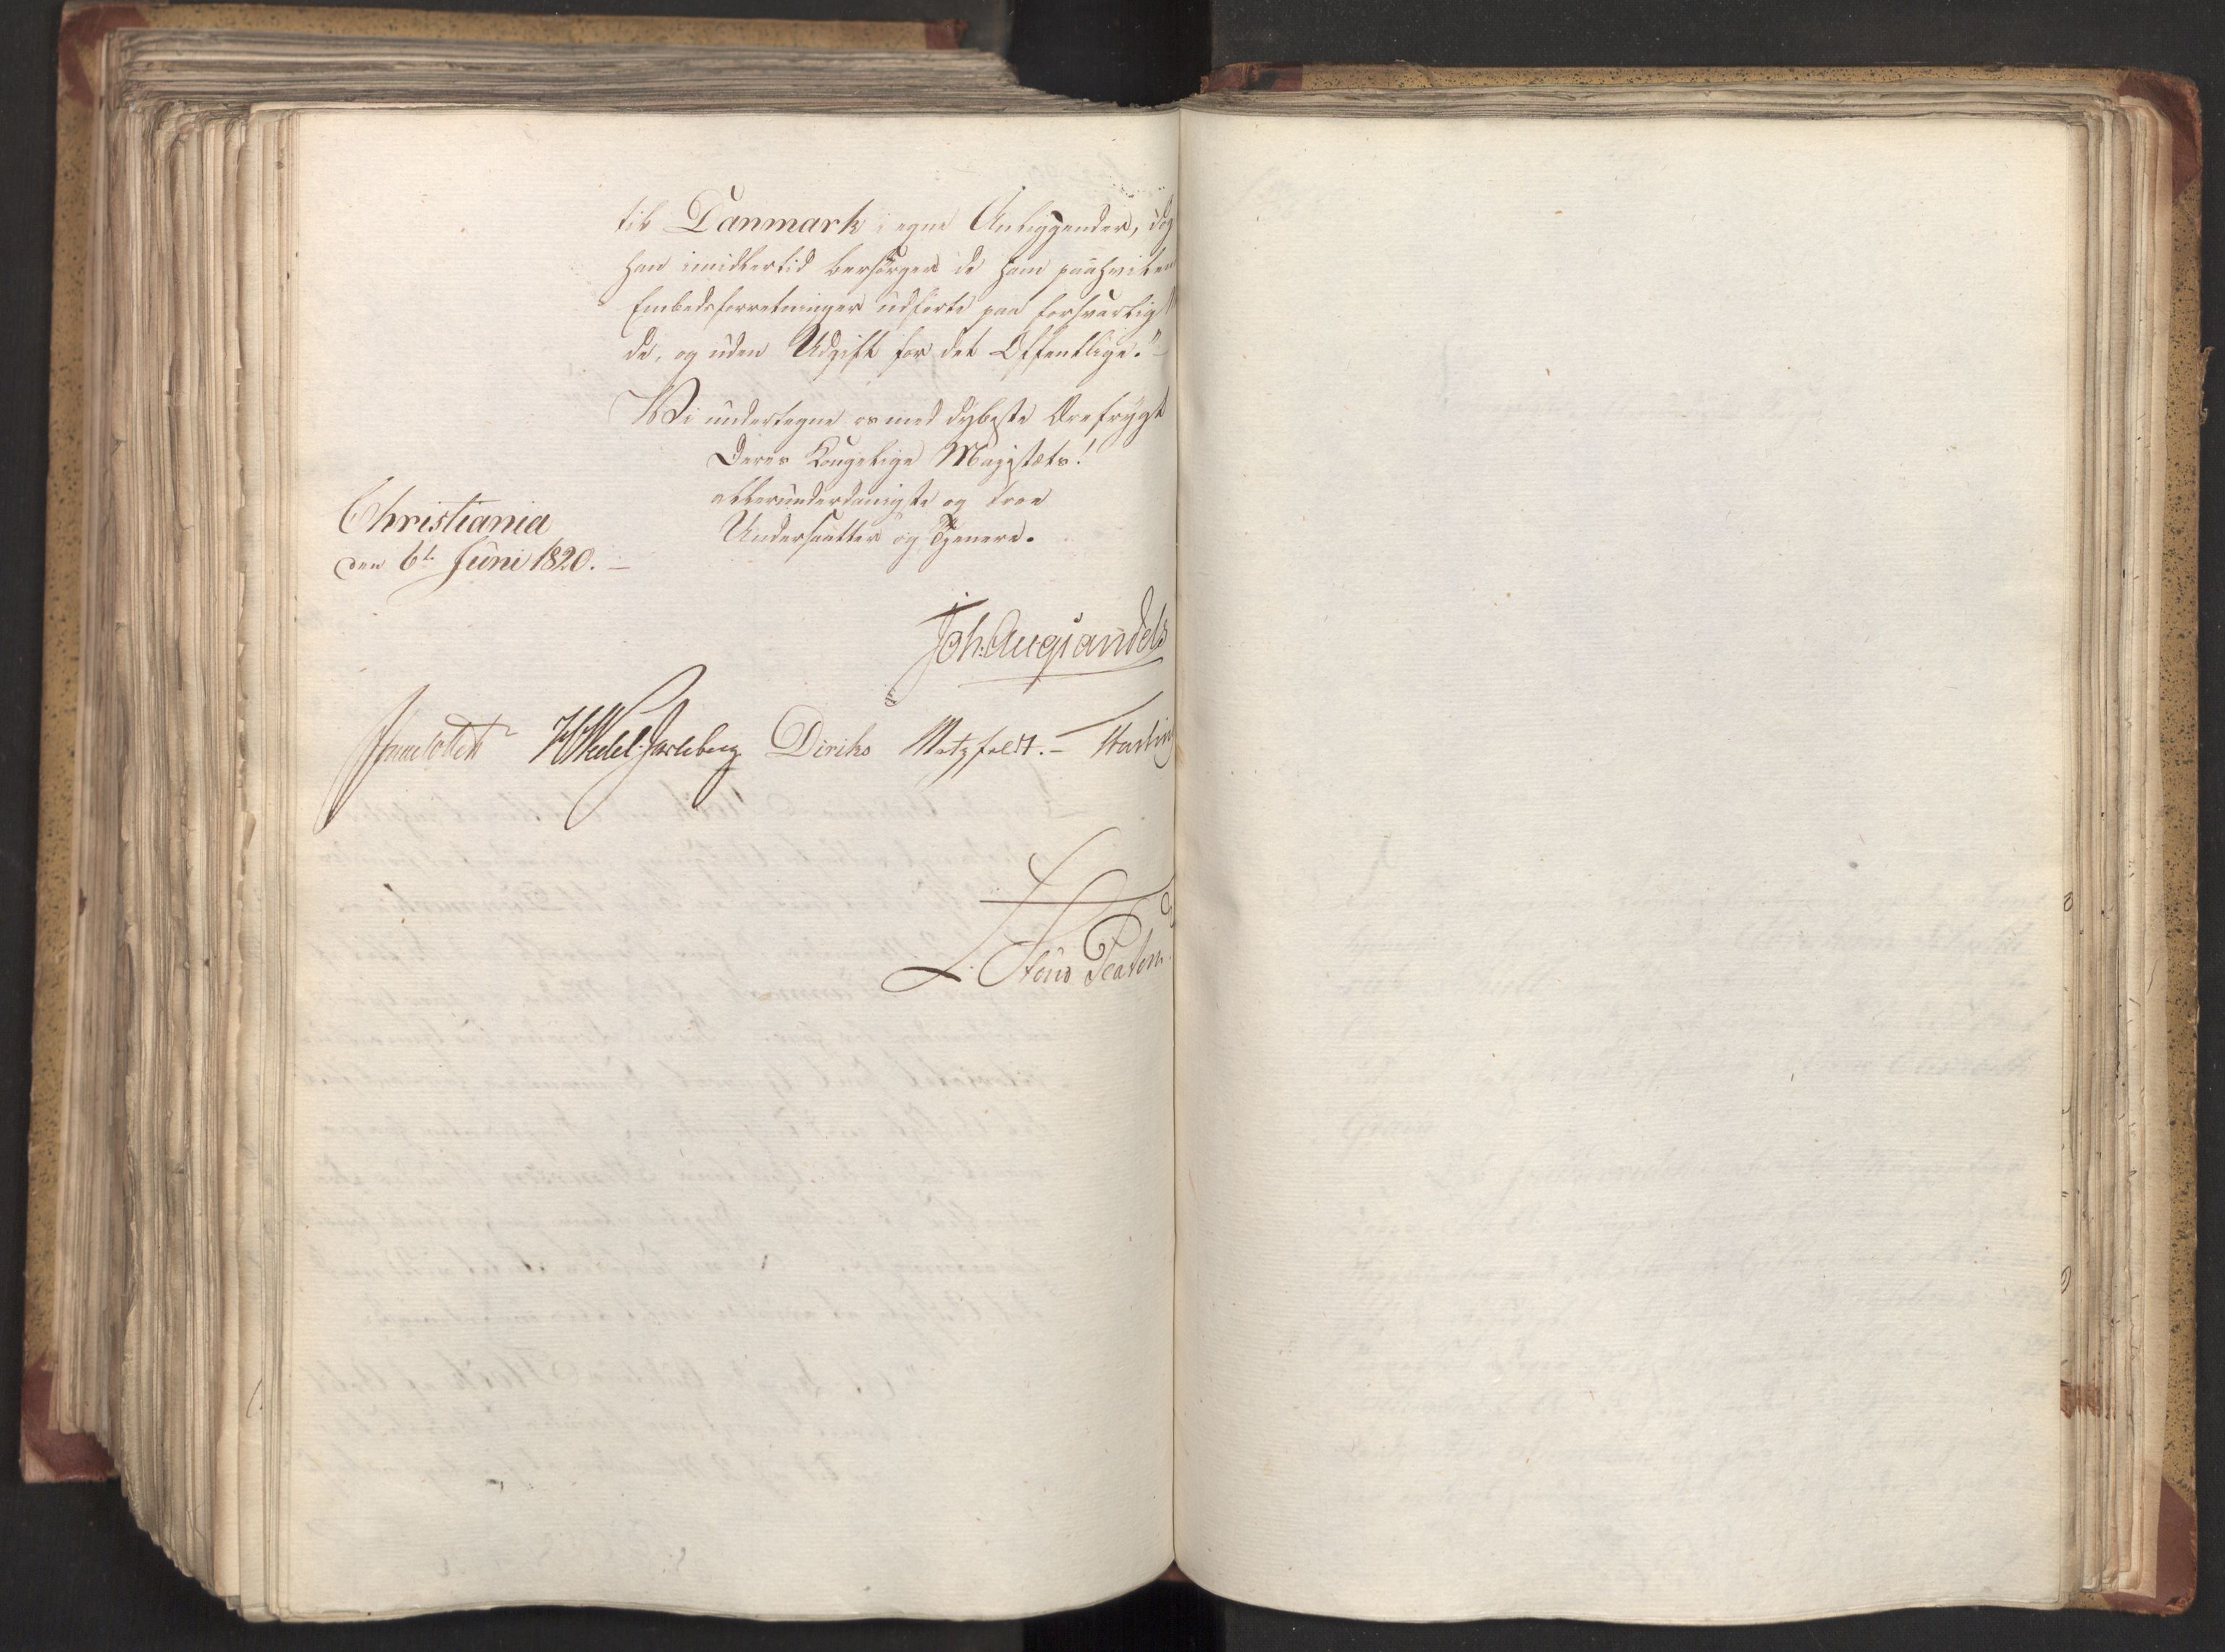 til Danmark i egne Anliggender, dog
han imidlertid besørger de ham paahvilen
Embedsforretninger udførte paa forsvarlig
de, og uden Udgift for det Offentlige."
Vi undertegne os med dybeste Ærefrygt
Deres Kongelige Majestæts!
allerunderdanigste og troe
Undersaatter og Tjenere.
Christiania
den 6te Juni 1820.
Joh: Aug: Sandels
HWedel-Jarlsberg Diriks Motzfeldt.
L. Platou